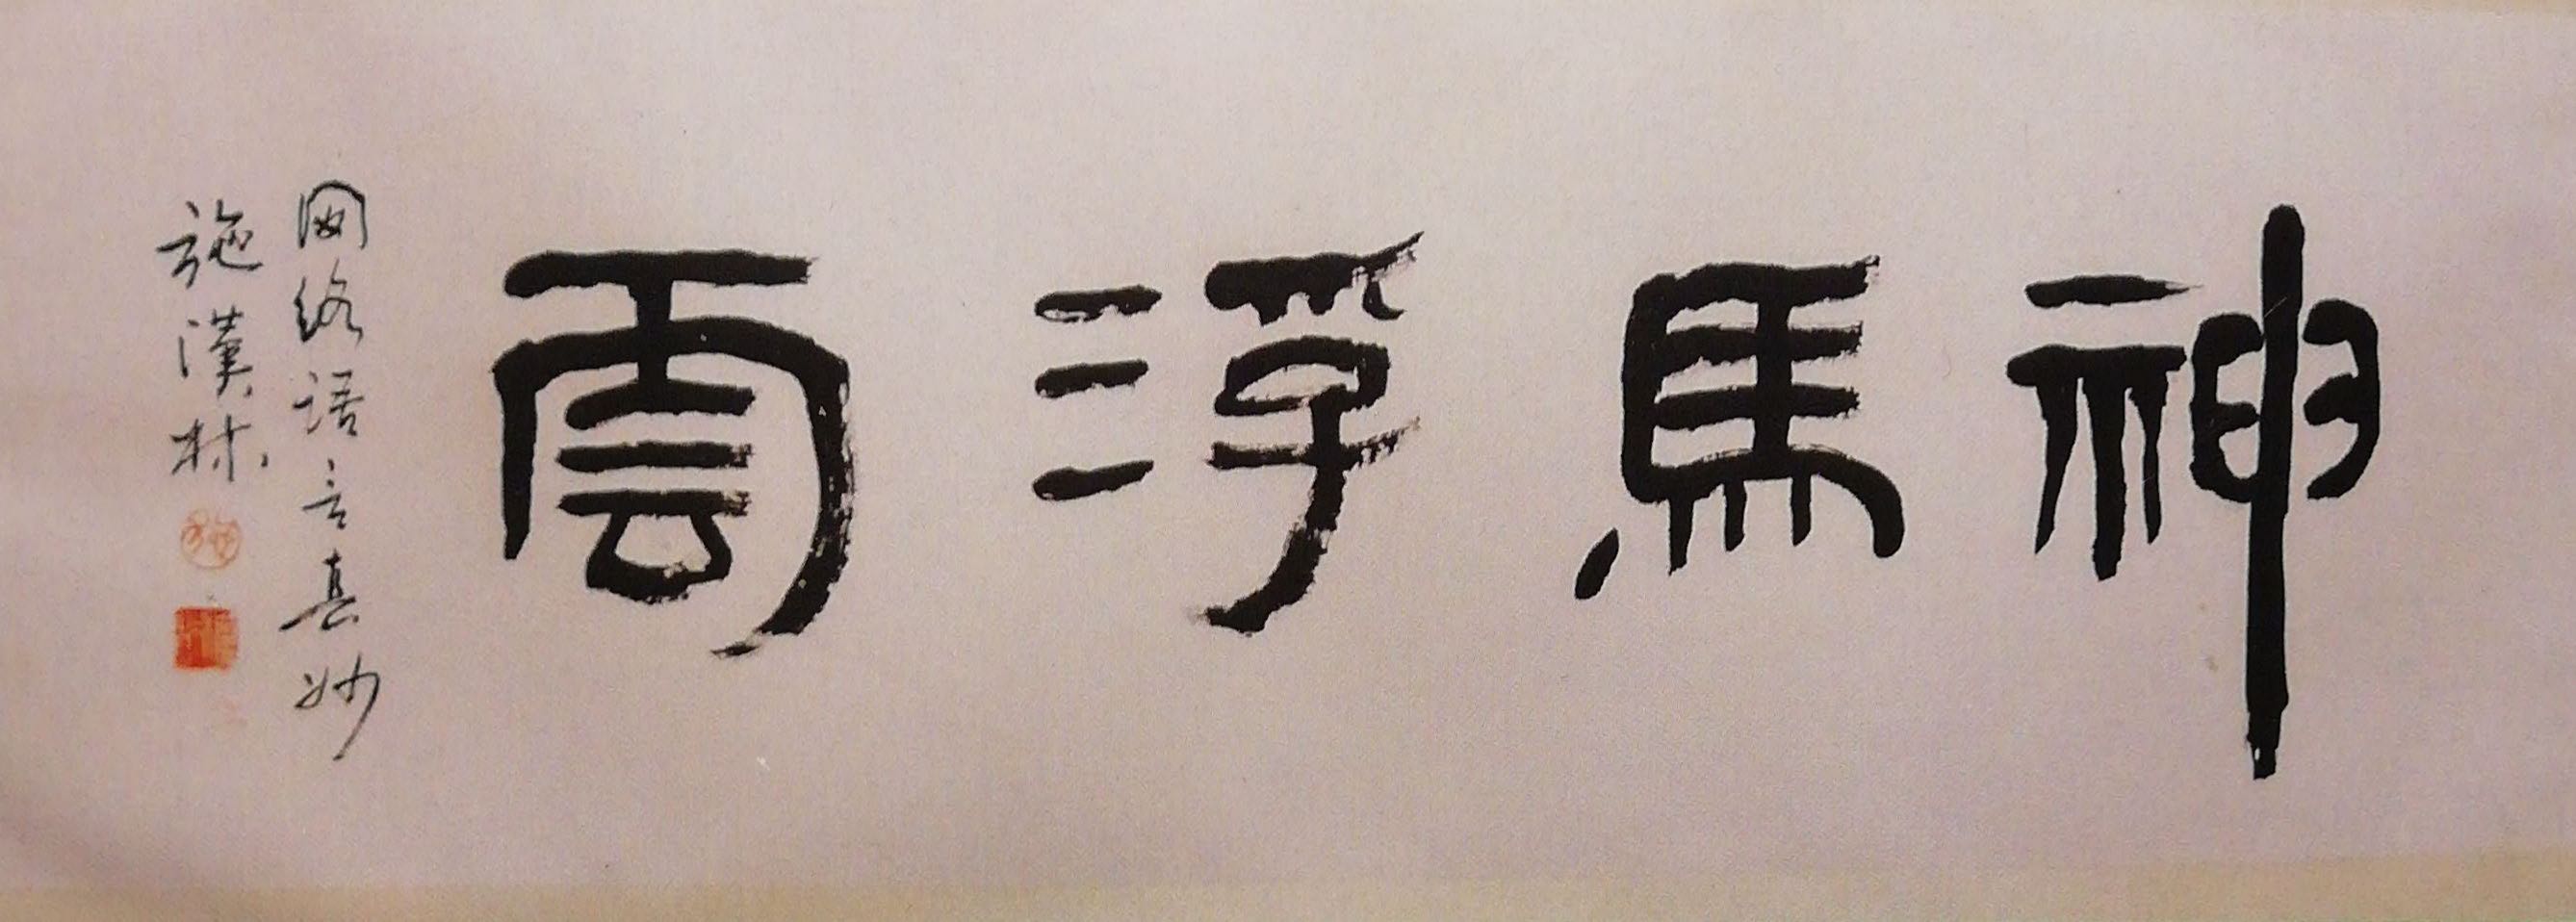 神馬浮雲
网络语言真妙
施漢林